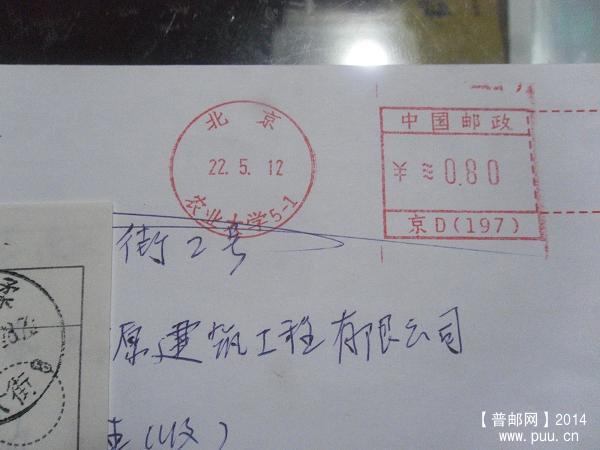 北京
中国邮政
22.5.12
¥≈0.80
农业大学5-1
京D(197)
街2号
原建筑工程有限公司
(收)
柔
街
【普邮网】2014
www.puu.cn